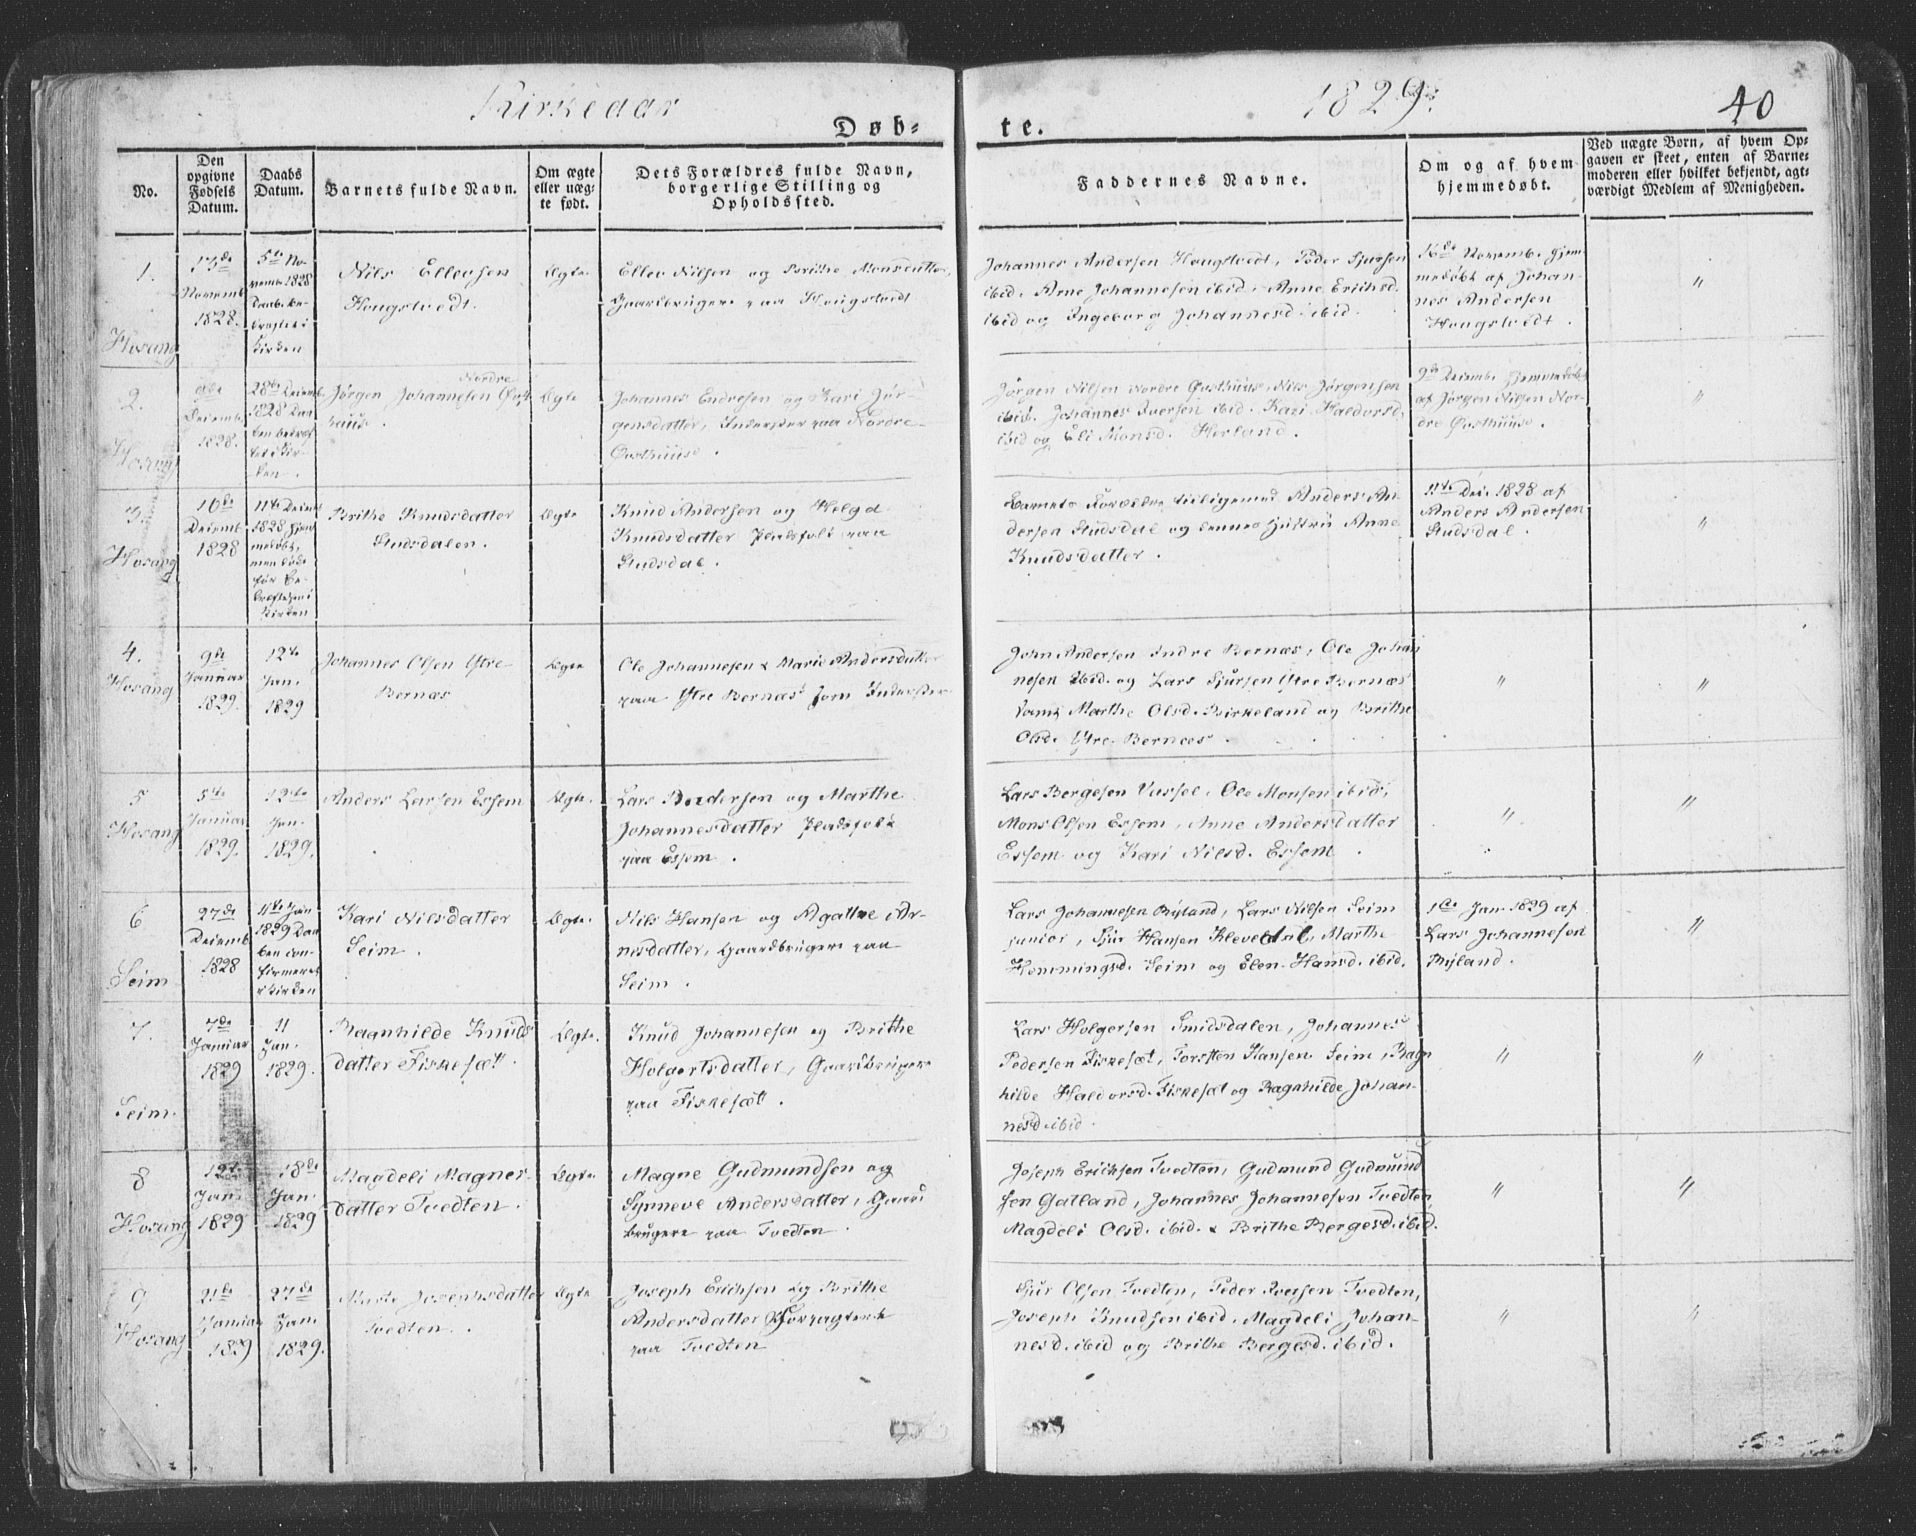 Kirkeaar
1829.
40
Døb=
te.
No.
Den opgivne Fødsels Datum.
Daabs Datum.
Barnets fulde Navn.
Om ægte eller uæg- te født.
Dets Forældres fulde Navn, borgerlige Stilling og Opholdssted.
Faddernes Navne.
Om og af hvem hjemmedøbt.
Ved uægte Børn, af hvem Op- gaven er skeet, enten af Barne- moderen eller hvilket bekjendt, agt- værdigt Medlem af Menigheden.
1.
Hosang
13de
Novemb
1828.
5te No-
vemb. 1828
Daab. be-
kræftet i
Kirken
Nils Ellevsen
Hougstvedt.
Ægte
Ellev Nilsen og Brithe Monsdatter,
Gaardbrugere paa Hougstvedt
Johannes Andersen Hougstvedt, Peder Sjursen
ibid. Arne Johannesen ibid. Anne Erichsd.
ibid og Ingeborg Johannesd. ibid.
16de Novemb. Hjem-
medøbt af Johan-
nes Andersen
Hougstvedt.
"
2.
Hosang
Decemb.
1828.
28de Decemb.
1828 Daa-
ben bekræf-
tet i Kir-
ken.
Nordre
Jørgen Johannesen Øvst
huus.
Ægte
Johannes Endresen og Kari Jør-
gensdatter, Inderster paa Nordre
Øvsthuus.
Jørgen Nilsen Nordre Øvsthuus, Nils Jørgensen
ibid. Johannes Iversen ibid. Kari Haldorsd.
ibid og Eli Monsd. Herland.
9de Decemb. Hjemmedøbt
af Jørgen Nilsen Nor-
dre Øvsthuus.
"
3.
Hosang
10de
Decemb.
1828
11te Decemb
1828 Hjem-
medøbt,
men døde
før Be-
kræftelsen i
Kirken
Brithe Knudsdatter
Studsdalen.
Ægte
Knud Andersen og Helga
Knudsdatter Pladsfolk paa
Studsdal.
Barnets Forældre tilligemed Anders An-
dersen Studsdal og dennes Hustru Anne
Knudsdatter.
11te Dec. 1828 af
Anders Andersen
Studsdal.
"
4.
Hosang
9de
Januar
1829.
12te
Jan.
1829
Johannes Olsen Ytre
Bernæs
Ægte
Ole Johannesen & Marie Andersdatter
paa Ytre Bernæs som Inderster
John Andersen Indre Bernæs, Ole Johan
nesen ibid. og Lars Sjursen Ytre Bernæs
samt Marthe Olsd. Birkeland og Brithe
Olsd. Ytre Bernæs.
"
"
5
Hosang
5te
Januar
1829.
12te
Jan.
1829.
Anders Larsen Essem
Ægte.
Lars Pedersen og Marthe
Johannesdatter Pladsfolk
paa Essem.
Lars Bergesen Vassel, Ole Monsen ibid,
Mons Olsen Essem, Anne Andersdatter
Essem og Kari Nilsd. Essem.
"
"
6
Seim
27de
Decemb
1828
11te Jan
1829 Daa
ben con-
firmeret
i Kirken
Kari Nilsdatter
Seim.
Ægte.
Nils Hansen og Agathe Ar-
nesdatter, Gaardbrugere paa
Seim.
Lars Johannesen Byland, Lars Nilsen Seim
junior, Sjur Hansen Kleveldal, Marthe
Hemmingsd. Seim og Elen Hansd. ibid.
1ste Jan. 1829 af
Lars Johannesen
Byland.
"
7.
Seim.
7de
Januar
1829
11
Jan.
1829.
Ragnhilde Knuds
datter Fiskesæt.
Ægte.
Knud Johannesen og Brithe
Holgertsdatter, Gaardbrugere
paa Fiskesæt.
Lars Holgersen Smidsdalen, Johannes
Pedersen Fiskesæt, Torsten Hansen Seim, Ragn
hilde Haldorsd. Fiskesæt og Ragnhilde Johan-
nesd. ibid.
"
"
8
Hosang
12te
Jan.
1829
18de
Jan.
1829
Magdeli Magnes-
datter Tvedten.
Ægte
Magne Gudmundsen og
Synneve Andersdatter, Gaard
brugere paa Tvedten.
Joseph Erichsen Tvedten, Gudmund Gudmund
sen Gatland, Johannes Johannesen Tvedten,
Magdeli Olsd. ibid. & Brithe Bergesd. ibid.
"
"
9
Hosang
21de
Januar
1829
27de
Jan.
1829.
Marte Josephsdatter
Tvedten.
Ægte
Joseph Erichsen og Brithe
Andersdatter Forpagterfolk
paa Tvedten
Sjur Olsen Tvedten, Peder Iversen Tvedten,
Joseph Knudsen ibid. Magdeli Johan-
nesd. ibid og Brithe Bergesd. ibid.
"
"